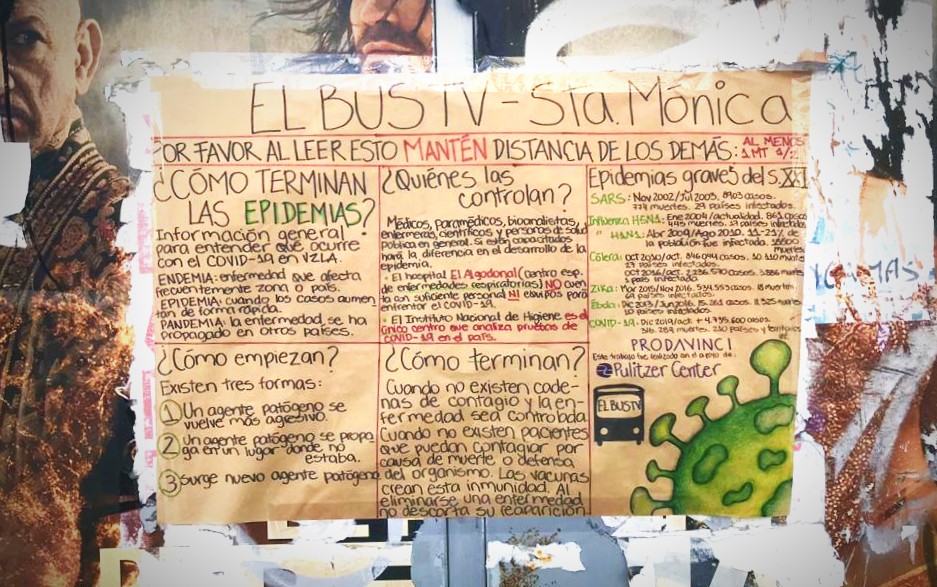 EL BUS TV - Sta. Mónica
POR FAVOR AL LEER ESTO MANTÉN DISTANCIA DE LOS DEMÁS: AL MENOS
1 MT 1/2
¿CÓMO TERMINAN
LAS EPIDEMIAS?
Información general
para entender qué ocurre
con el COVID-19 en VZLA.
ENDEMIA: enfermedad que afecta
frecuentemente zona o país.
EPIDEMIA: cuando los casos aumen
tan de forma rápida.
PANDEMIA: la enfermedad se ha
propagado en otros países.
¿Quiénes las
controlan?
Médicos, paramédicos, bioanalistas,
enfermeras, científicos y personas de salud
pública en general. Si están capacitados
hará la diferencia en el desarrollo de la
epidemia.
• El hospital El Algodonal (centro esp.
de enfermedades respiratorias) NO cuen
ta con suficiente personal NI equipos para
enfrentar el COVID-19.
• El Instituto Nacional de Higiene es el
único centro que analiza pruebas de
COVID-19 en el país.
Epidemias graves del S.XXI
SARS: Nov 2002/Jul 2003. casos.
774 muertes. 29 países infectados.
Influenza H5N1: Ene 2004/actualidad. 861 casos
países infectados.
" H1N1: Abr 2009/Ago 2010. 11-21% de
la población fue infectada.
muertes
Cólera: oct 2010/oct.
países infectados.
oct 2016/oct. casos. muertes
país infectado.
Zika: Mar 2015/Nov 2016. casos. muertes
países infectados.
Ébola: casos.
10 países infectados.
COVID-19: Dic 2019/act. + 4.735.600 casos.
muertes. países y territorios
¿Cómo empiezan?
Existen tres formas:
1 Un agente patógeno se
vuelve más agresivo.
2 Un agente patógeno se propa
ga en un lugar donde no
estaba.
3 Surge nuevo agente patógeno
¿Cómo terminan?
Cuando no existen cade-
nas de contagio y la en-
fermedad sea controlada.
Cuando no existen pacientes
que puedan contagiar por
causa de muerte o defensa
del organismo. Las vacunas
crean esta inmunidad. Al
eliminarse una enfermedad
no descarta su reaparición
PRODAVINCI
Este trabajo fue realizado con el apoyo de:
Pulitzer Center
EL BUS TV